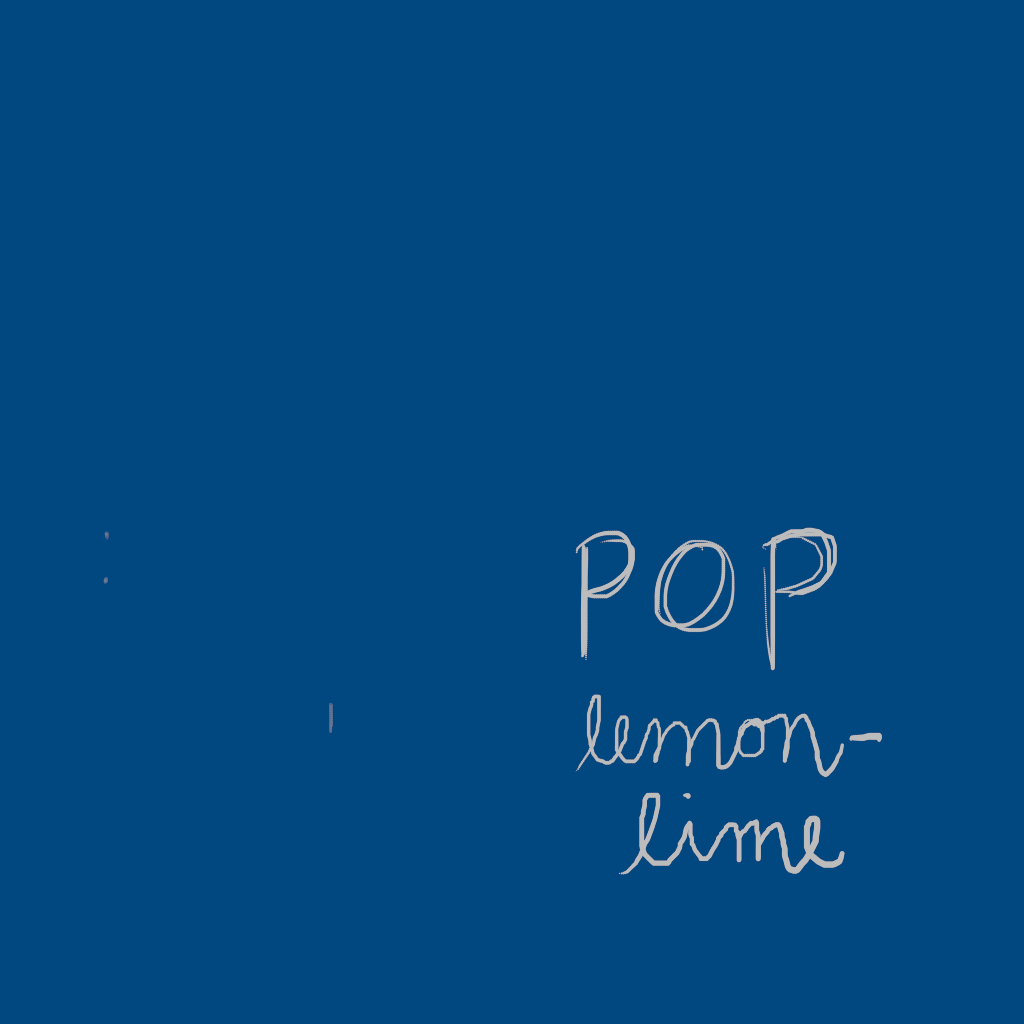 POP
lemon-
lime